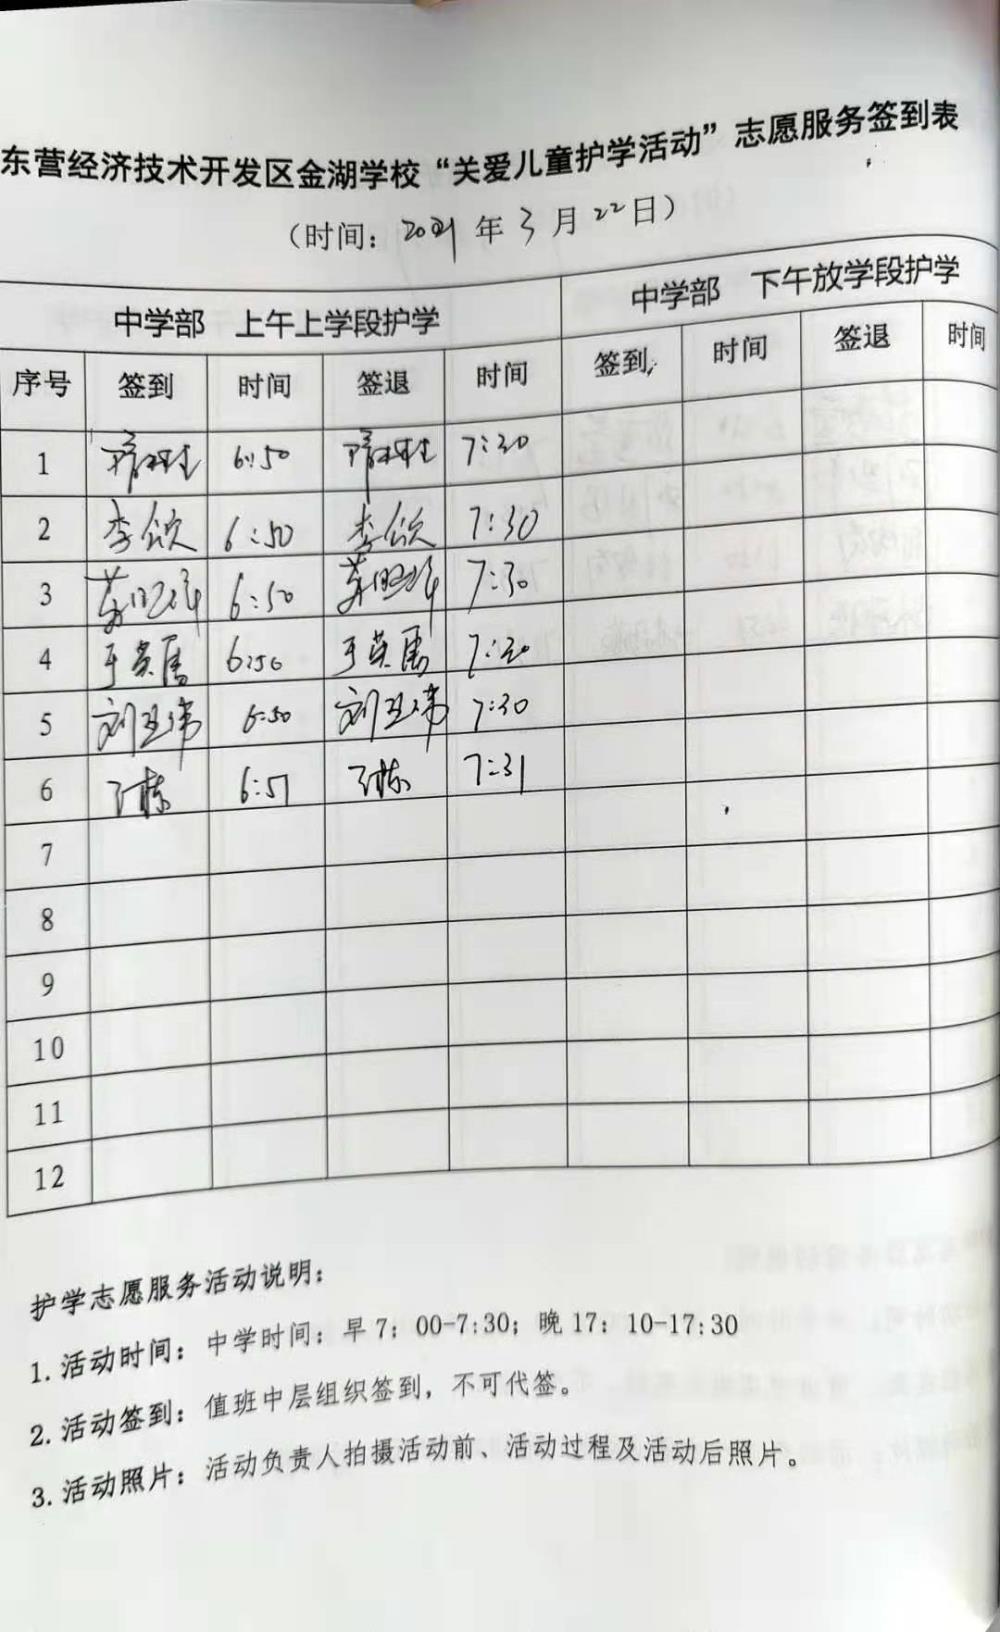 东营经济技术开发区金湖学校“关爱儿童护学活动”志愿服务签到表
（时间：2021年3月22日）
中学部 上午上学段护学 中学部 下午放学段护学
序号 签到 时间 签退 时间 签到 时间 签退 时间
1 6:50 7:30
2 李欣 6:50 李欣 7:30
3 6:50 7:30
4 于英 6:50 于英 7:30
5 刘卫伟 6:50 刘卫伟 7:30
6 6:51 7:31
7
8
9
10
11
12
护学志愿服务活动说明：
1.活动时间：中学时间：早7：00-7:30；晚17：10-17:30
2.活动签到：值班中层组织签到，不可代签。
3.活动照片：活动负责人拍摄活动前、活动过程及活动后照片。